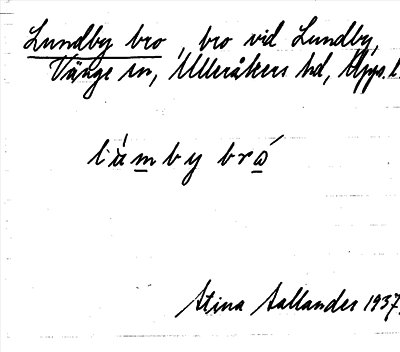 Lundby bro, bro vid Lundby,
Vänge sn, Ulleråkers hd, Upps. l.
làmby bró
Stina Sallander 1937.